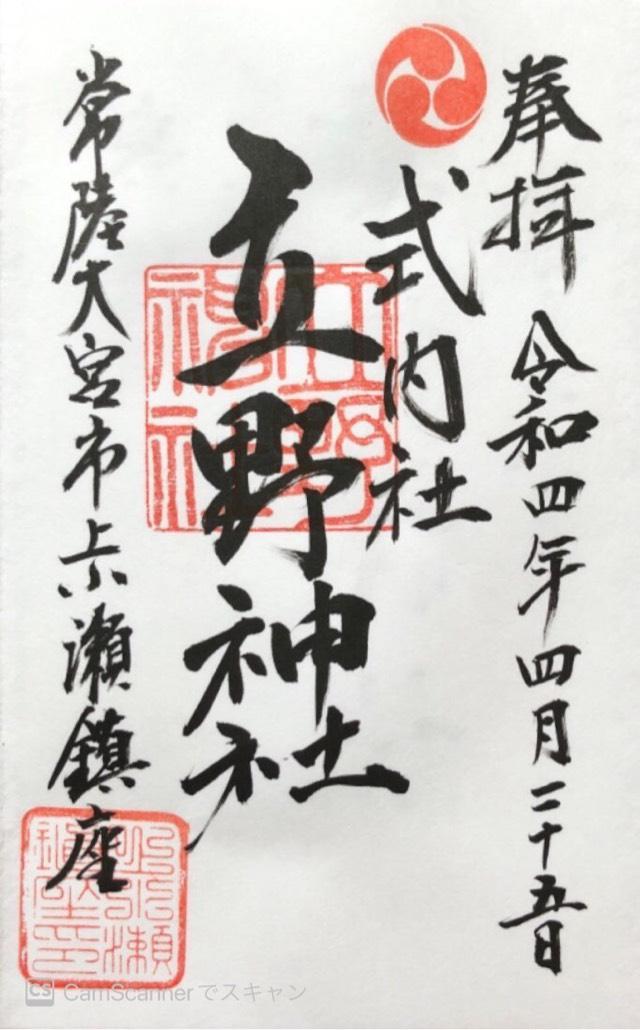 奉拝 令和四年四月二十五日
式内社
立野神社
常陸大宮市上小瀬鎮座
立野神社
CS CamScannerでスキャン